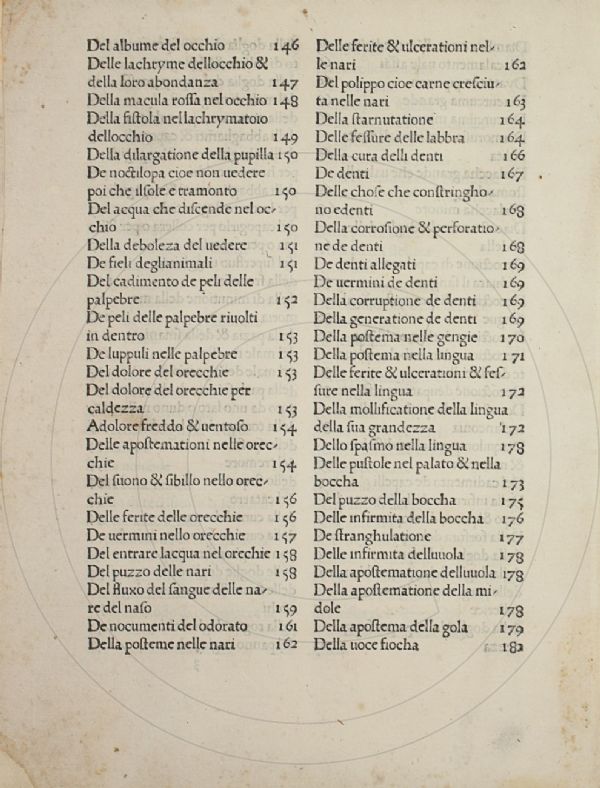 Del albume del occhio 146
Delle lachryme dellocchio &
della loro abondanza 147
Della macula rossa nel occhio 148
Della fistola nel lachrymatoio
dellocchio 149
Della dilargatione della pupilla 150
De noctilopa cioe non uedere
poi che ilsole e tramonto 150
Del acqua che discende nel oc-
chio 150
Della deboleza del uedere 151
De fieli deglianimali 151
Del cadimento de peli delle
palpebre 152
De peli delle palpebre riuolti
in dentro 153
De luppuli nelle palpebre 153
Del dolore del orecchie 153
Del dolore del orecchie per
caldezza 153
Adolore freddo & uentoso 154
Delle apostemationi nelle orec-
chie 154
Del suono & sibillo nello orec-
chie 156
Delle ferite delle orecchie 156
De uermini nello orecchie 157
Del entrare lacqua nel orechie 158
Del puzzo delle nari 158
Del fluxo del sangue delle na-
re del naso 159
De nocumenti del odorato 161
Della posteme nelle nari 162
Delle ferite & ulcerationi nel-
le nari 162
Del polippo cioe carne cresciu-
ta nelle nari 163
Della starnutatione 164
Delle fessure delle labbra 164
Della cura delli denti 166
De denti 167
Delle chose che constringho-
no edenti 168
Della corrosione & perforatio-
ne de denti 168
De denti allegati 169
De uermini de denti 169
Della corruptione de denti 169
Della generatione de denti 169
Della postema nelle gengie 170
Della postema nella lingua 171
Delle ferite & ulcerationi & fes-
sure nella lingua 172
Della mollificatione della lingua
della sua grandezza 172
Dello spasmo nella lingua 178
Delle pustole nel palato & nella
boccha 173
Del puzzo della boccha 175
Delle infirmita della boccha 176
De stranghulatione 177
Delle infirmita delluuola 178
Della apostematione delluuola 178
Della apostematione della mi-
dole 178
Della apostema della gola 179
Della uoce fiocha 182